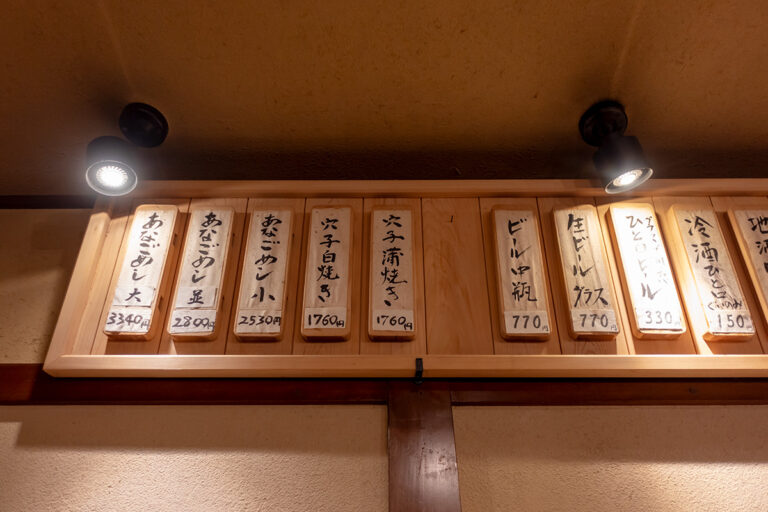 あなごめし 大
3340円
あなごめし 並
2800円
あなごめし 小
2530円
穴子白焼き
1760円
穴子蒲焼き
1760円
ビール中瓶
770円
生ビール グラス
770円
ひとくちビール
330円
冷酒ひと口
ぐいのみ
150円
地酒